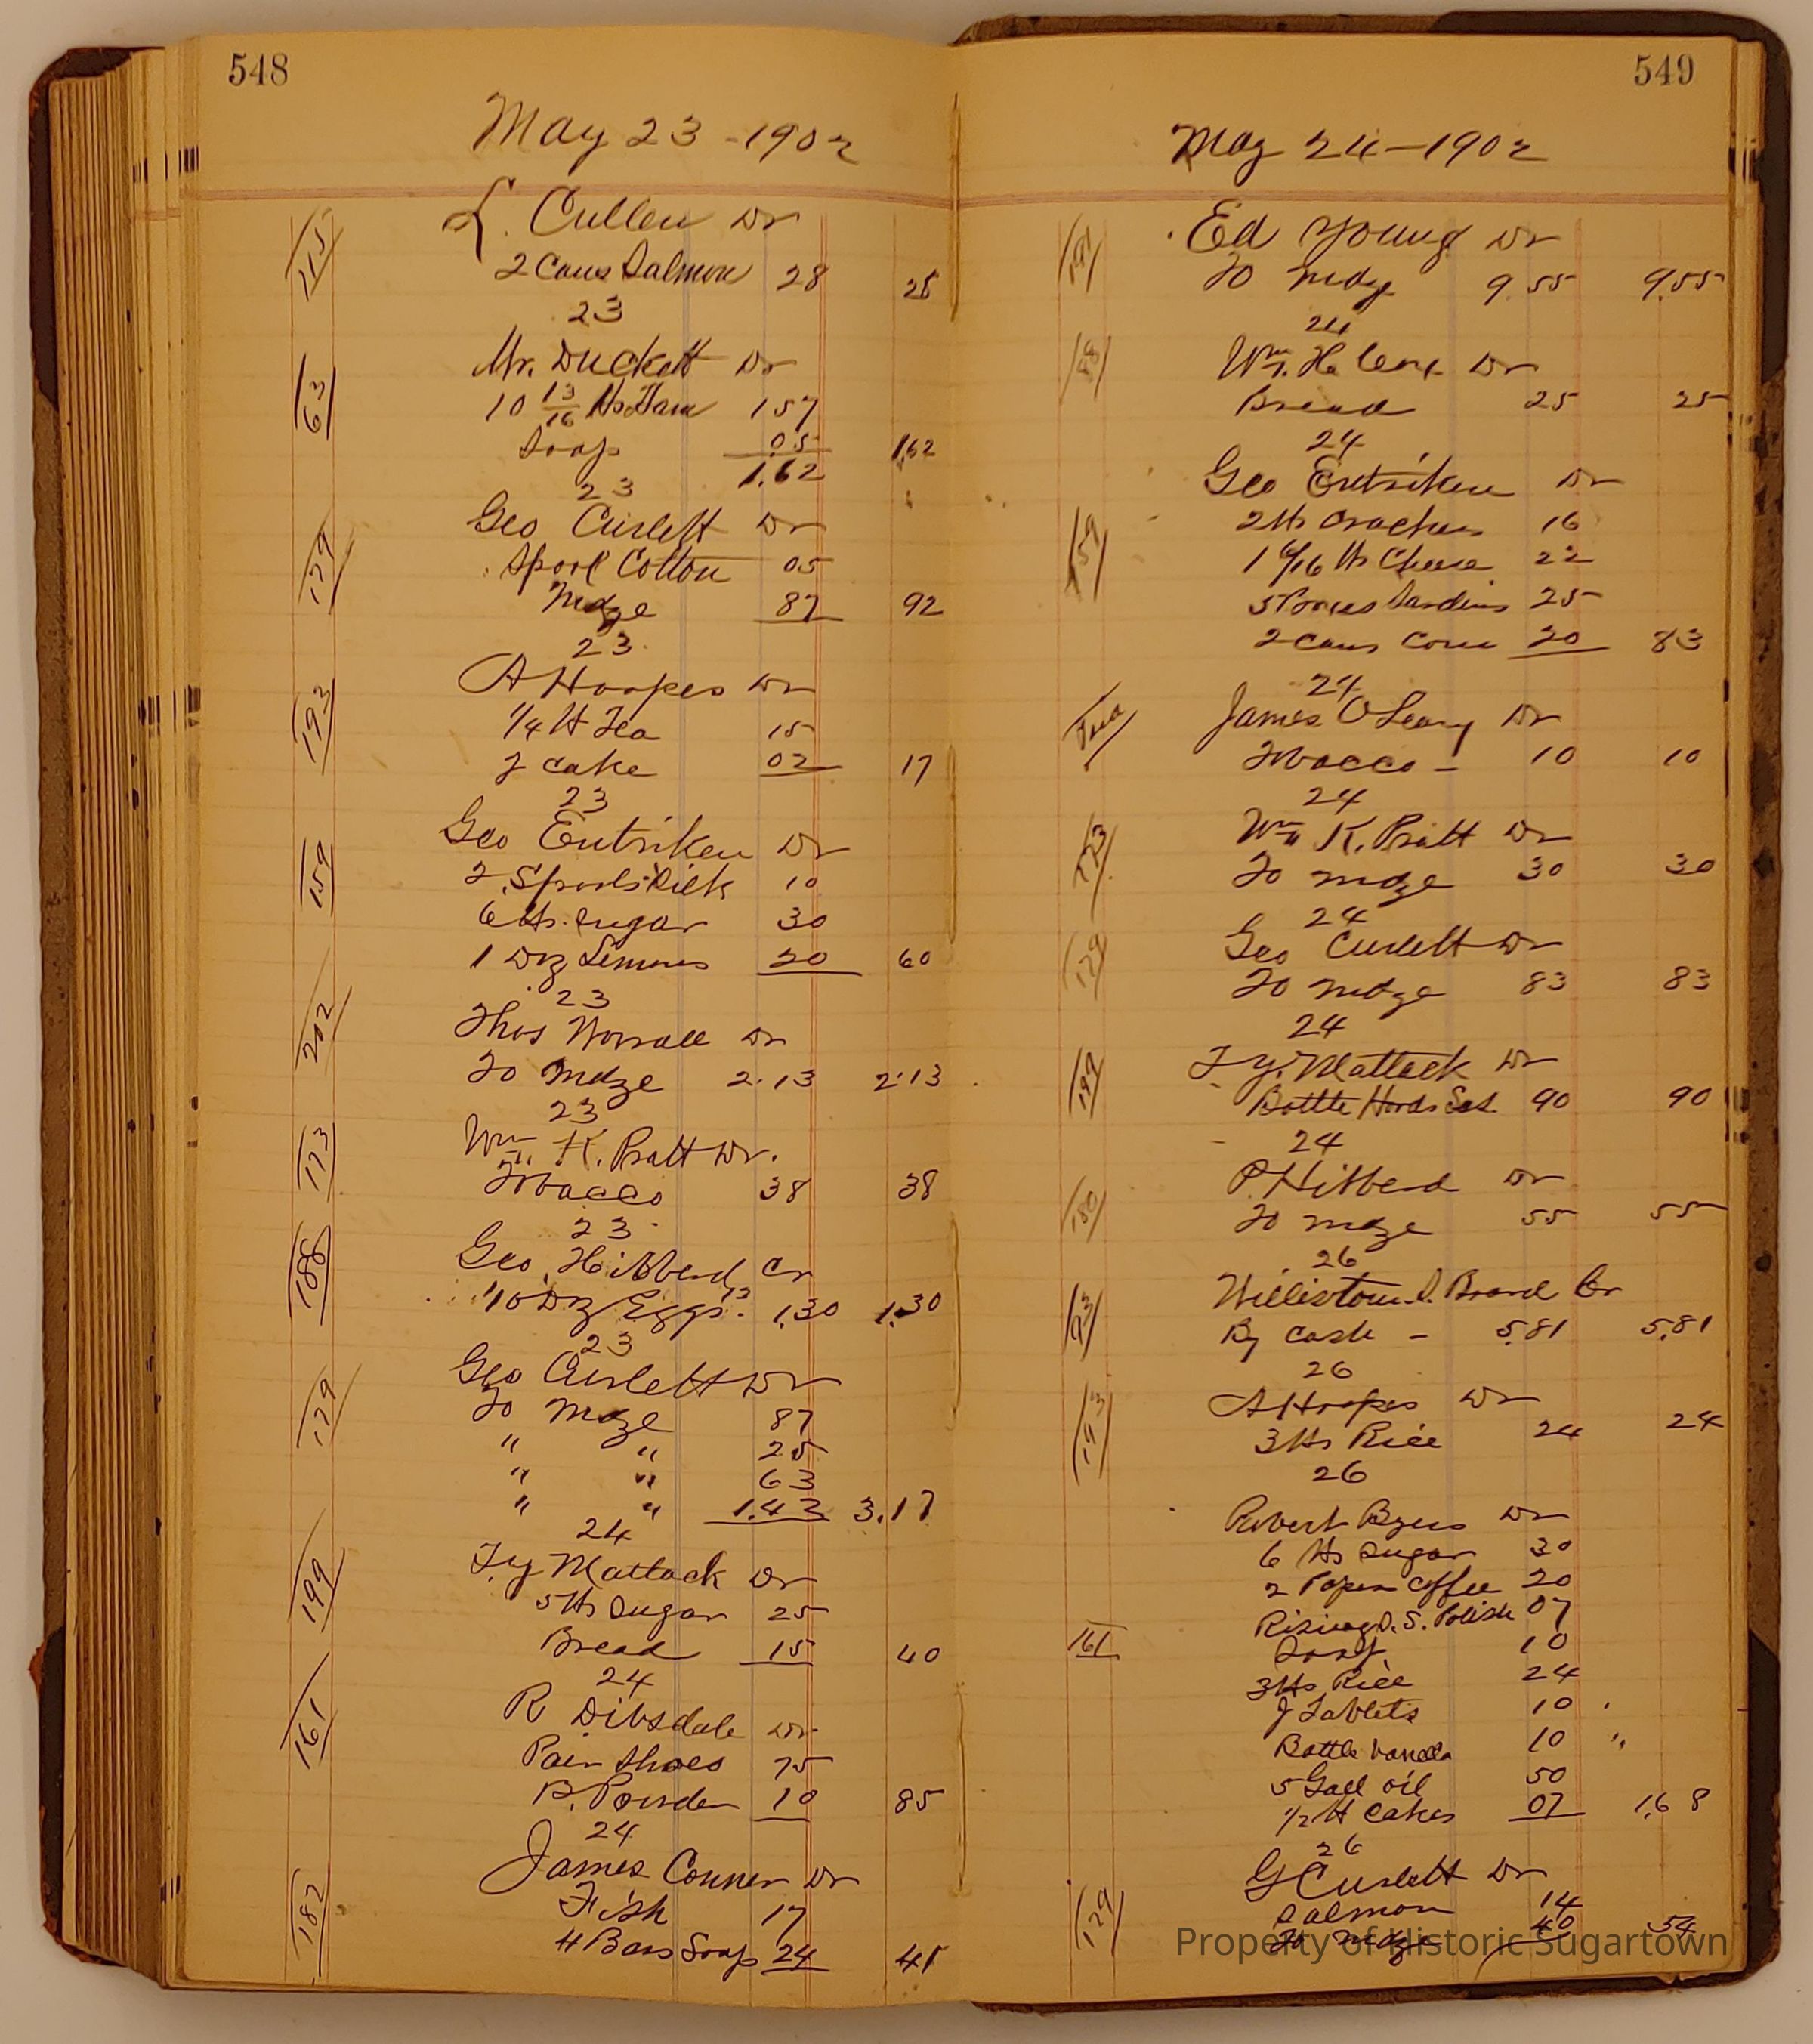 548
May 23 - 1902
L. Cullen Dr
215
2 Cans Salmon 28 28
23
Mr. Duckett Dr
63
10 13/16 lbs Ham 157
Soap 05 1.62
1.62
23
Geo Curlett Dr
129
Spool Cotton 05
Mdze 87 92
23
A Hoopes Dr
193
1/4 lb Tea 15
Y cake 02 17
23
Geo Entriken Dr
159
2 Spools Silk 10
6 lbs. Sugar 30
1 Doz Lemons 20 60
23
202
Thos Worrall Dr
To Mdze 2.13 2.13
23
173
Wm K. Pratt Dr.
Tobacco 38 38
23
188
Geo. Hibberd Cr
10 Doz Eggs 13 1.30 1.30
23
Geo Curlett Dr
129
To Mdze 87
" " 25
" " 63
" " 1.42 3.17
24
199
T. y Mattack Dr
5 lbs Sugar 25
Bread 15 40
24
161
R Dibsdale Dr
Pair Shoes 75
B. Powder 10 85
24
James Conner Dr
182
Fish 17
4 Bars Soap 24 41
549
May 24 - 1902
Ed Young Dr
To Mdze 9.55 9.55
24
88
Wm. H. Dr
Bread 25 25
24
Geo Entriken Dr
159
2 lbs Crackers 16
1 6/16 lbs Cheese 22
5 Boxes Sardines 25
2 cans Corn 20 83
24
James O Leary Dr
Tobacco - 10 10
24
173
Wm K. Pratt Dr
To Mdze 30 30
24
129
Geo Curlett Dr
To Mdze 83 83
24
199
T y. Mattack Dr
Bottle Hoods Sas. 90 90
24
180
P. Hibberd Dr
To Mdze 55 55
26
93
Willistown S. Board Cr
By Cash - 5.81 5.81
26
193
A Hoopes Dr
3 lbs Rice 24 24
26
Robert Byers Dr
6 lbs Sugar 30
2 Papers Coffee 20
Rising S. S. Polish 07
161
Soap 10
3 lbs Rice 24
Y Tablets 10
Bottle Vanella 10 "
5 Gall oil 50
1/2 lb Cakes 07 1.68
26
G Curlett Dr
129
Salmon 14
To Mdze 40 54
Property of Historic Sugartown